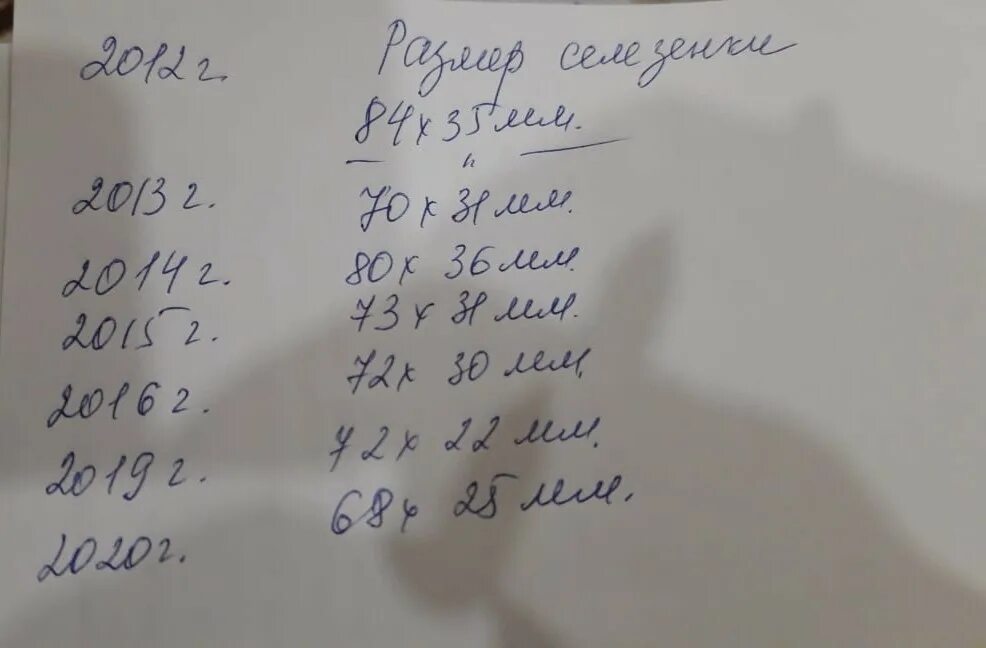 2012 г. Размер селезенки
84 х 35 мм.
2013 г. 70 х 31 мм.
2014 г. 80 х 36 мм.
2015 г. 73 х 31 мм.
2016 г. 72 х 30 мм.
2019 г. 72 х 22 мм.
2020 г. 68 х 25 мм.